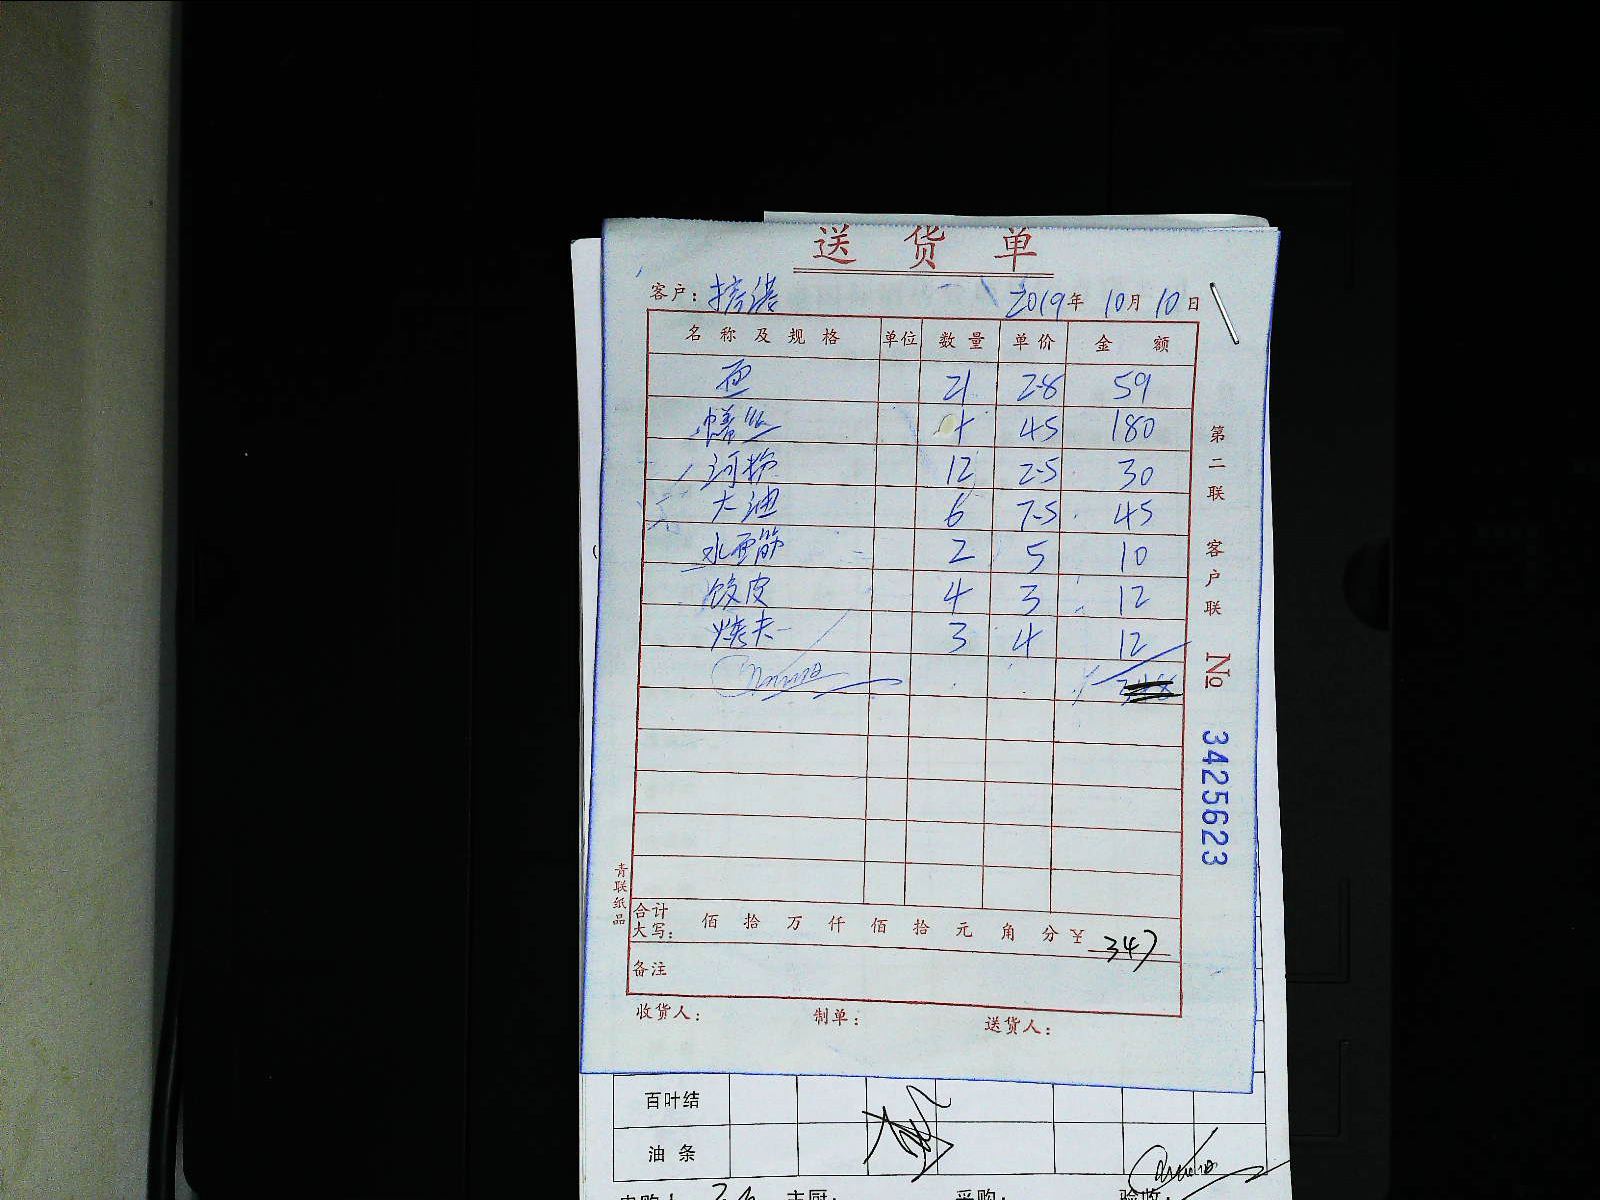 送货单
客户: 2019年10月10日
名称及规格 单位 数量 单价 金额
面 21 2.8 59
鳝丝 4 45 180
河粉 12 2.5 30
大油 6 7.5 45
水面筋 2 5 10
饺皮 4 3 12
烤夫 3 4 12
合计
大写: 佰 拾 万 仟 佰 拾 元 角 分 ¥ 347
备注
收货人: 制单: 送货人:
第二联 客户联 №3425623
青联纸品
百叶结
油条
主厨: 采购: 验收: